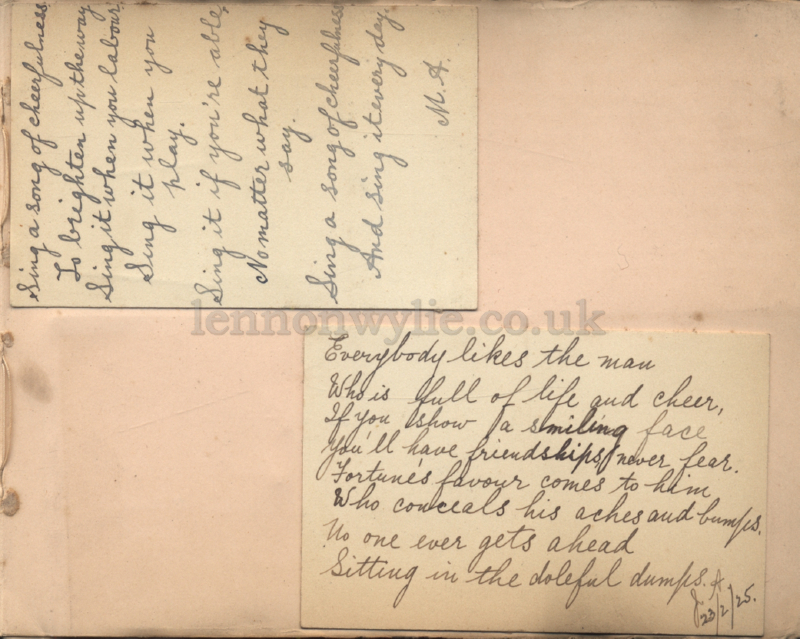 Sing a song of cheerfulness
To brighten up the way
Sing it when you labour,
Sing it when you
play.
Sing it if you're able,
No matter what they
say.
Sing a song of cheerfulness
And sing it every day.
M. A.
lennonwylie.co.uk
Everybody likes the man
Who is full of life and cheer,
If you show a smiling face
You'll have friendships, never fear.
Fortune's favour comes to him
Who conceals his aches and bumps.
No one ever gets ahead
Sitting in the doleful dumps.
J. A.
23/2/25.